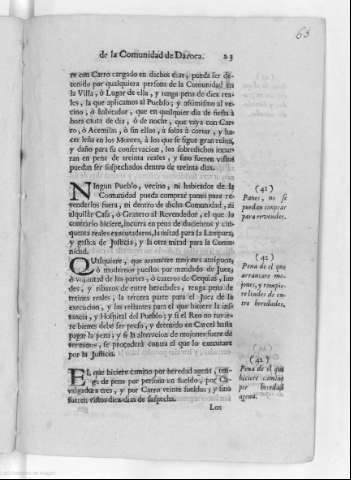 63
de la Comunidad de Daroca. 23
re con Carro cargado en dichos dias, pueda ser detenido
por qualquiera persona de la Comunidad en
la Villa, ò Lugar de ella, y tenga pena de diez reales,
la que aplicamos al Pueblo; y assimismo al vecino,
ò habitador, que en qualquier dia de fiesta à
hora cauta de dia, ò de noche, que vaya con Carro,
ò Acemilas, ò sin ellas, à solos à cortar, y hacer
leña en los Montes, à los que se sigue gran ruina,
y daño para su conservacion, los sobredichos incurran
en pena de treinta reales, y sino fueren vistos
puedan ser sospechados dentro de treinta dias.
NIngun Pueblo, vecino, ni habitador de la
Comunidad pueda comprar panes para revenderlos
fuera, ni dentro de dicha Comunidad, ni
alquilar Casa, ò Granero al Revendedor, el que lo
contrario hiciere, incurra en pena de ducientos y cinquenta
reales executaderos, la mitad para la Lampara,
y gastos de Justicia, y la otra mitad para la Comunidad.
(41)
Panes, no se
puedan comprar
para revenderles.
QUalquiere, que arrancare mojones antiguos,
ò modernos puestos por mandado de Juez,
ò voluntad de las partes, ò cazeras de Cequias, lindes,
y ribazos de entre heredades, tenga pena de
treinta reales, la tercera parte para el Juez de la
execucion, y los restantes para el que hiciere la instancia,
y Hospital del Pueblo; y si el Reo no tuviere
bienes debe ser preso, y detenido en Carcel hasta
pagar la pena; y si la abreviatura de mojones fuere de
terminos, se procederá contra el que lo executare
por la Justicia.
(42)
Pena de el que
arrancare mojones,
y rompiere
lindes de entre
heredades.
EL que hiciere camino por heredad agena, tenga
de pena por persona un sueldo, por Cavalgadura
tres, y por Carro veinte sueldos; y sino
fueren vistos diez dias de sospecha.
(42)
Pena de el que
hiciere camino
por heredad
agena.
Los